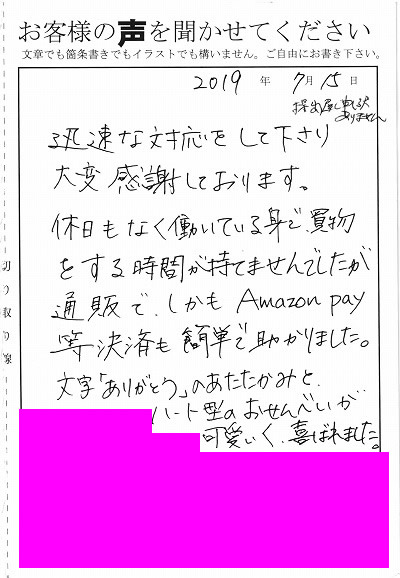 お客様の声を聞かせてください
文章でも箇条書きでもイラストでも構いません。ご自由にお書き下さい。
2019 年 7月 15日
提出遅く申し訳
ありません
迅速な対応をして下さり
大変感謝しております。
休日もなく働いている身で、買物
をする時間が持てませんでしたが
通販で、しかも Amazon pay
等決済も簡単で助かりました。
文字「ありがとう」のあたたかみと、
ハート型のおせんべいが
可愛いく、喜ばれました。
切り取り線